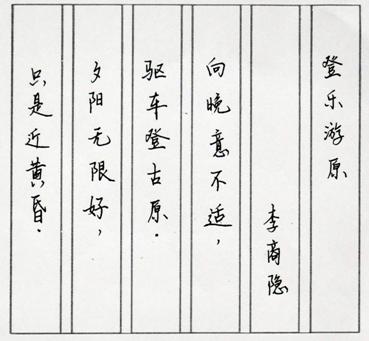 登乐游原
李商隐
向晚意不适，
驱车登古原.
夕阳无限好，
只是近黄昏.